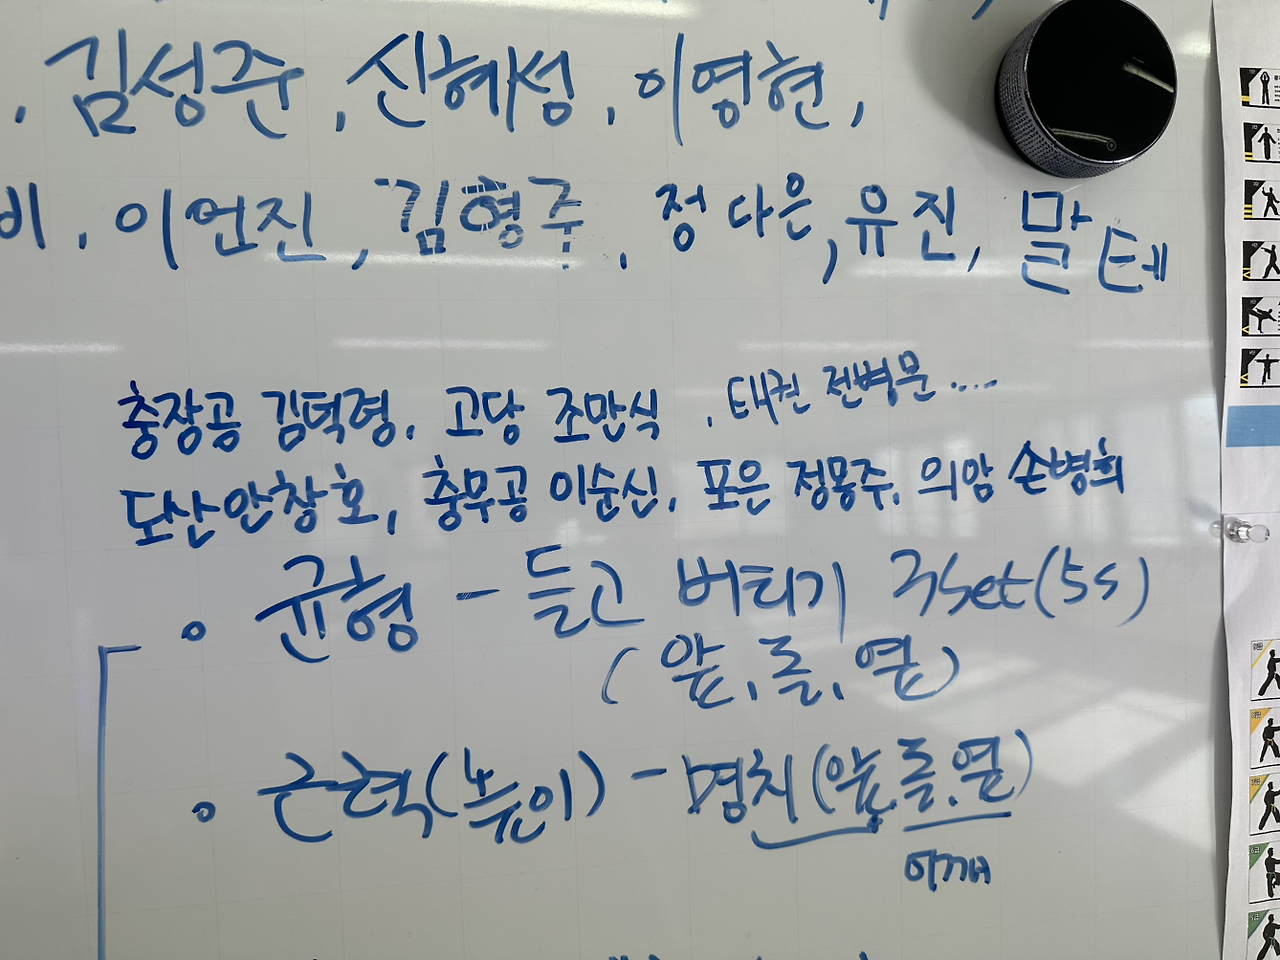 . 김성준, 신혜성, 이영현,
비, 이언진, 김형주, 정다은, 유진, 말테
충장공 김덕령, 고당 조만식, 태권 전병문 ....
도산 안창호, 충무공 이순신, 포은 정몽주, 의암 손병희
• 균형 - 들고 버티기 3set(5s)
(앞, 돌, 옆)
• 근력(높이) - 명치(앞, 돌, 옆)
어깨